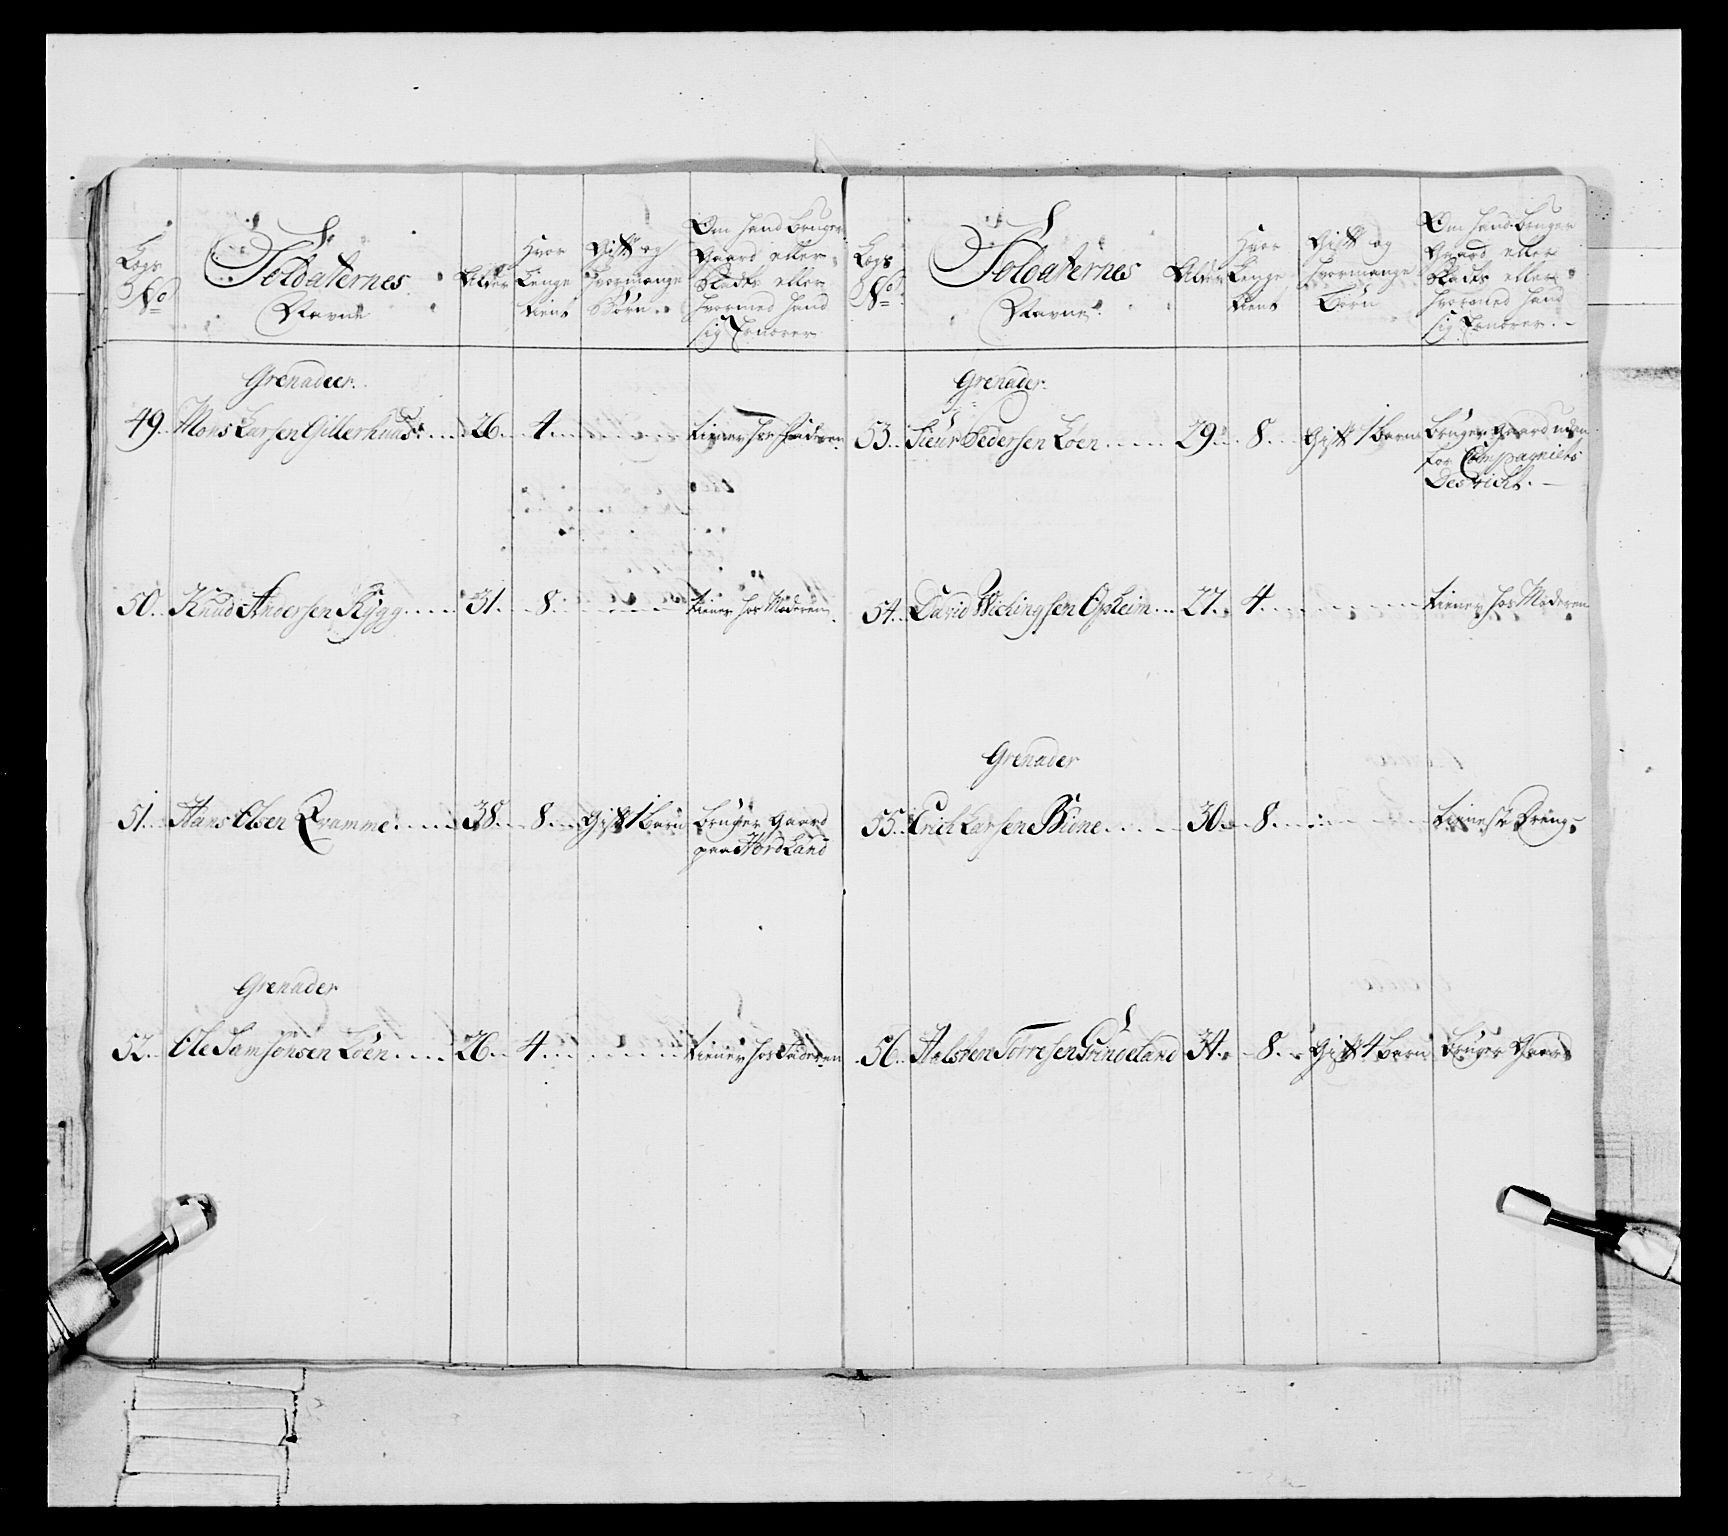 Logs No
Soldaternes Navne
Alder
Hvor Lenge tient
Gift og hvormange Børn
Om hand bruger Gaard eller Plads eller hvormed hand sig Ernærer
Grenadeer.
49. Mons Larsen Gillerhuus. 26. 4. tiener hos Faderen
50. Knud Andersen Rygg 31. 8. tiener hos Moderen
51. Hans Olsen Qvamme. 38. 8. Gift 1 barn bruger Gaard
paa Nordland
Grenader
52. Ole Samsonsen Løen 26. 4. tiener hos Faderen
Logs No
Soldaternes Navne
Alder
Hvor Lenge tient
Gift og hvormange Børn
Om hand bruger Gaard eller Plads eller hvormed hand sig Ernærer
Grenader
53. Siur Pedersen Løen 29. 8. Gift 1 barn bruger Gaard uden
for Compagniets
Destricht.
54. David Wichingsen Opheim 27. 4. tiener hos Moderen
Grenader
55. Erich Larsen 30. 8. tieneste Dreng
56. Halsten Torresen Grindeland 34. 8. Gift 4 barn bruger Gaard